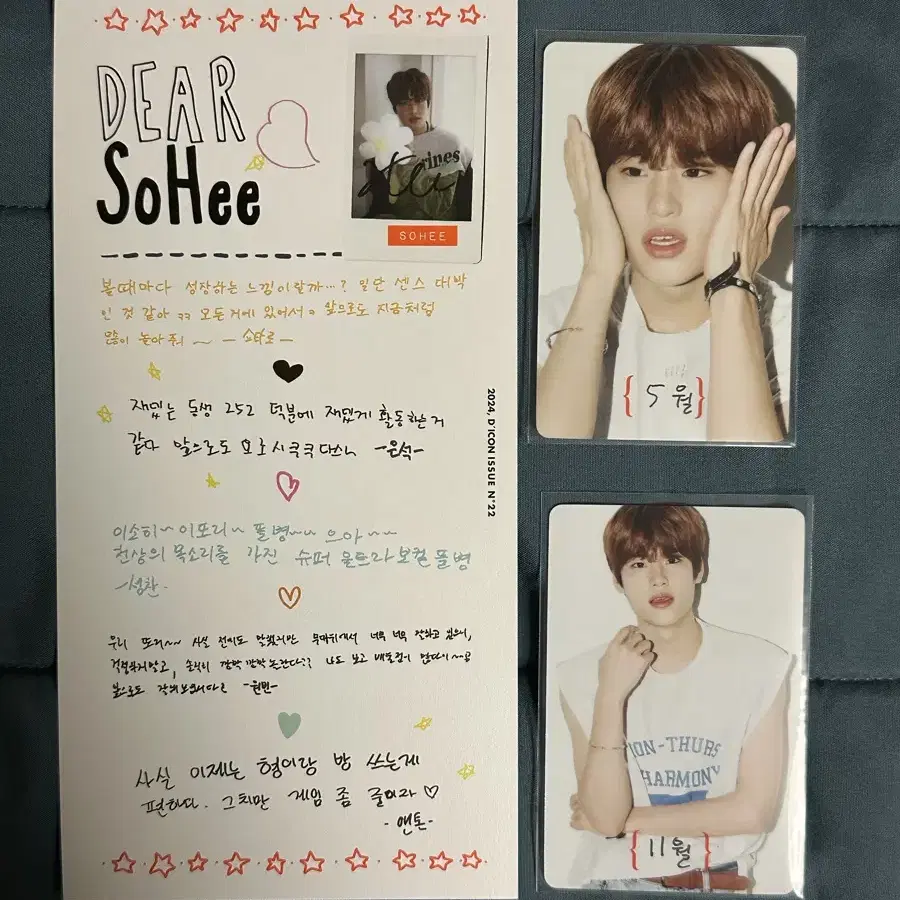 DEAR
SoHee
rines
SOHEE
볼때마다 성장하는 느낌이랄까…? 일단 센스 대박
인 것 같아 ㅋㅋ 모든거에 있어서 앞으로도 지금처럼
많이 놀아줘 ~ - 쇼타로 -
재밌는 동생 252 덕분에 재밌게 활동하는거
같다 앞으로도 요호시쿠쿠다스 -은석-
이소히~ 이또리~ 똘병~~ 으아~~
천상의 목소리를 가진 슈퍼 울트라 보컬 똘병
-성찬-
우리 또리~~ 사실 전에도 말했지만 무대위에서 너무 너무 잘하고 있으니,
걱정하지말고, 솔직히 깜짝 깜짝 논란다?? 나도 보고 배울점이 많다이~
앞으로도 -원빈-
사실 이제는 형이랑 방 쓰는게
편하다. 그치만 게임 좀 줄이자 ♡
- 앤톤 -
2024, D'ICON ISSUE N°22
{ 5월 }
ON-THURS
HARMONY
{ 11월 }